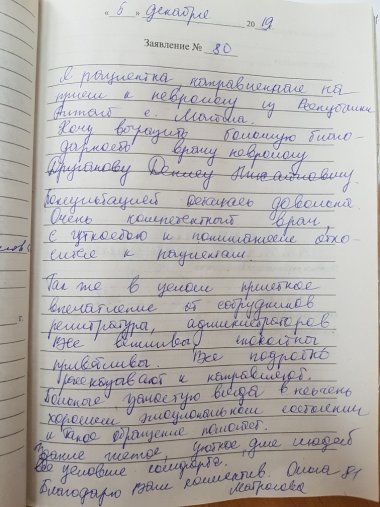 « 5 » декабря 2019
Заявление № 80
Я пациентка направленная на
прием к неврологу из Республики
Алтай с. Майма.
Хочу выразить большую благо-
дарность врачу неврологу
Денису Михайловичу
Консультацией осталась довольна.
Очень компетентный врач,
с чуткостью и пониманием отно-
сится к пациентам.
Так же в целом приятное
впечатление от сотрудников
регистратуры, администраторов.
Все вежливы, спокойны
приветливы. Все подробно
рассказывают и направляют.
Больные зачастую всегда в не очень
хорошем эмоциональном состоянии
и такое обращение помогает.
Здание чистое, уютное для людей
все условия комфорта.
Благодарю Вам коллектив. Ольга
81